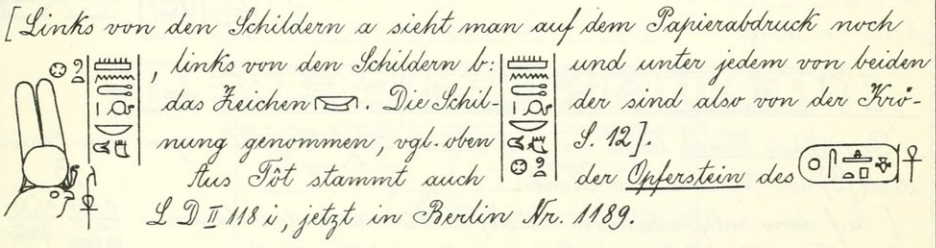 [Links von den Schildern a sieht man auf dem Papierabdruck noch
, links von den Schildern b: und unter jedem von beiden
das Zeichen . Die Schil- der sind also von der Krö-
nung genommen, vgl. oben S. 12].
Aus Tôt stammt auch der Opferstein des
L D II 118 i, jetzt in Berlin Nr. 1189.